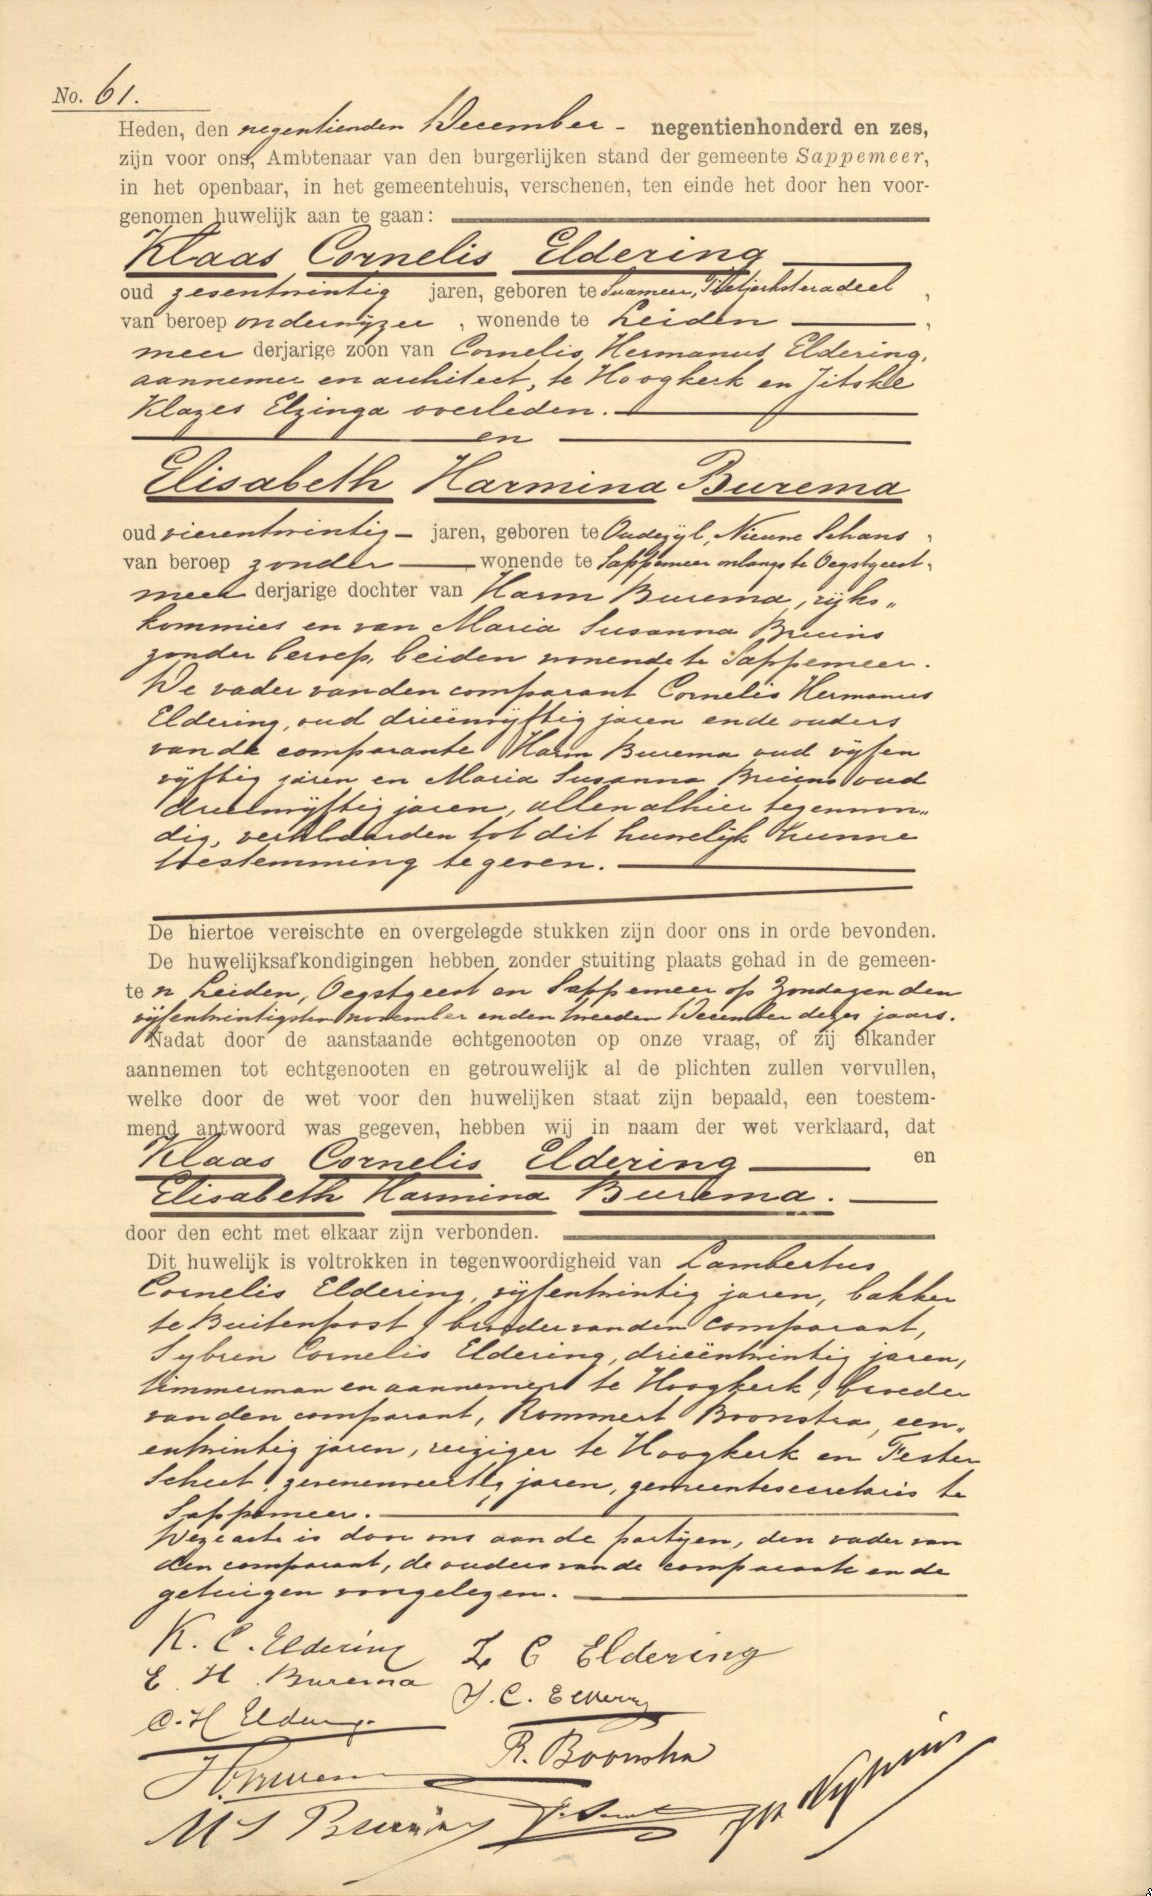 No. 61.
Heden, den negentienden December - negentienhonderd en zes,
zijn voor ons, Ambtenaar van den burgerlijken stand der gemeente Sappemeer,
in het openbaar, in het gemeentehuis, verschenen, ten einde het door hen voor-
genomen huwelijk aan te gaan:
Klaas Cornelis Eldering
oud zesentwintig jaren, geboren te Suameer, Tietjerksteradeel,
van beroep onderwijzer, wonende te Leiden,
meer derjarige zoon van Cornelis Hermanus Eldering,
aannemer en architect, te Hoogkerk en Jitske
Klazes Elzinga overleden.
en
Elisabeth Harmina Burema
oud vierentwintig - jaren, geboren te Oudezijl, Nieuwe Schans,
van beroep zonder, wonende te Sappemeer onlangs te Oegstgeest,
meer derjarige dochter van Harm Burema, rijks„
kommies en van Maria Susanna Bruins
zonder beroep, beiden wonende te Sappemeer.
De vader van den comparant Cornelis Hermanus
Eldering, oud drieënvijftig jaren en de ouders
van de comparante Harm Burema oud vijfen
vijftig jaren en Maria Susanna Bruins oud
drieenvijftig jaren, allen alhier tegenwoor„
dig, verklaarden tot dit huwelijk hunne
toestemming te geven.
De hiertoe vereischte en overgelegde stukken zijn door ons in orde bevonden.
De huwelijksafkondigingen hebben zonder stuiting plaats gehad in de gemeen-
te n Leiden, Oegstgeest en Sappemeer op Zondagen den
vijfentwintigsten november en den tweeden December dezes jaars.
Nadat door de aanstaande echtgenooten op onze vraag, of zij elkander
aannemen tot echtgenooten en getrouwelijk al de plichten zullen vervullen,
welke door de wet voor den huwelijken staat zijn bepaald, een toestem-
mend antwoord was gegeven, hebben wij in naam der wet verklaard, dat
Klaas Cornelis Eldering en
Elisabeth Harmina Burema.
door den echt met elkaar zijn verbonden.
Dit huwelijk is voltrokken in tegenwoordigheid van Lambertus
Cornelis Eldering, vijfentwintig jaren, bakker
te Buitenpost, broeder van den comparant,
Sybren Cornelis Eldering, drieëntwintig jaren,
timmerman en aannemer te Hoogkerk, broeder
van den comparant, Rommert Boonstra, een„
entwintig jaren, reiziger te Hoogkerk en Fester
zevenenveertig jaren, gemeentesecretaris te
Sappemeer.
Deze acte is door ons aan de partijen, den vader van
den comparant, de ouders van de comparante en de
getuigen voorgelezen.
K. C. Eldering L C Eldering
E. H. Burema S. C. Eldering
C. H Eldering
R. Boonstra
H Burema
M S Bruins